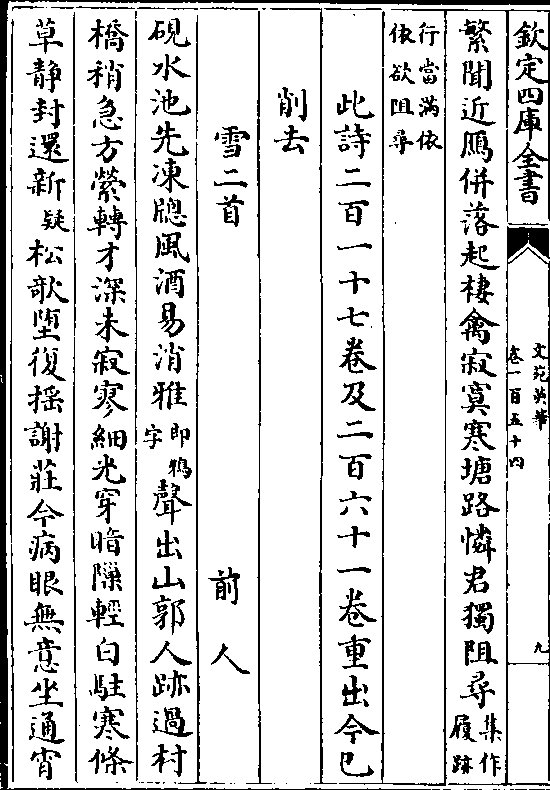 欽定四庫全書
文苑英華
卷一百五十四
九
繁聞近鴈併落起棲禽寂寞寒塘路憐君獨阻尋集作履跡
行當滿依依欲阻尋
此詩二百一十七卷及二百六十一卷重出今已
削去
雪二首 前人
硯水池先凍窻風酒易消雅即鴉字聲出山郭人跡過村
橋稍急方縈轉才深未寂寥細光穿暗隟輕白駐寒條
草静封還新疑松欹墮復揺謝莊今病眼無意坐通宵